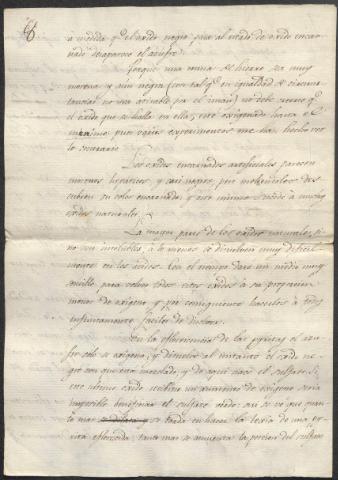 á medida q.e el oxide negro pasa al estado de oxide encar-
nado desaparece el azufre.
Porque una mina de hierro sea muy
morena y aun negra (con tal q.e en igualdad de circuns-
tancias no sea atraible por el iman) no debe creerse q.e
el oxide que se halla en ella, esté oxigenado hasta el
maximo pues varios experimentos me han hecho ver
lo contrario.
Los oxides encarnados artificiales parecen
morenos
y casi negros, pero moliendolos des-
cubren su color encarnado; y esto mismo sucede á muchos
oxides naturales.
La mayor parte de los oxides naturales, si
no son insolubles, á lo menos se disuelven muy dificil-
mente en los acidos. Con el tiempo daré un medio muy
sencillo para volver todos estos oxides á su proporcion
menor de oxigeno y por consiguiente hacerlos á todos
instantaneamente faciles de disolver.
En la eflorescencia de las pyritas el azu-
fre solo se oxigena, y disuelve al instante el oxide ne-
gro con que está mezclado, y de aqui nace el sulfate. Si
este ultimo oxide recibiera un aumento de oxigeno seria
imposible beneficiar el sulfate
asi se ve que quan-
to mas
se tarda en hacer la lexia de una py-
rita eflorecida, tanto mas se aumenta la porcion del sulfate